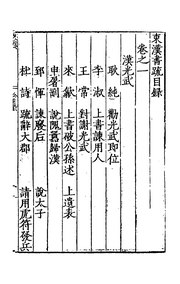 東漢書疏目録
卷之一
漢光武
耿純 勸光武即位
李淑 上書諫用人
王常 對謝光武
來歙 上書破公孫述 上遺表
申屠剛 說隗囂歸漢
郅惲 諫廢后 說太子
杜詩 疏辭大郡 請用虎符發兵